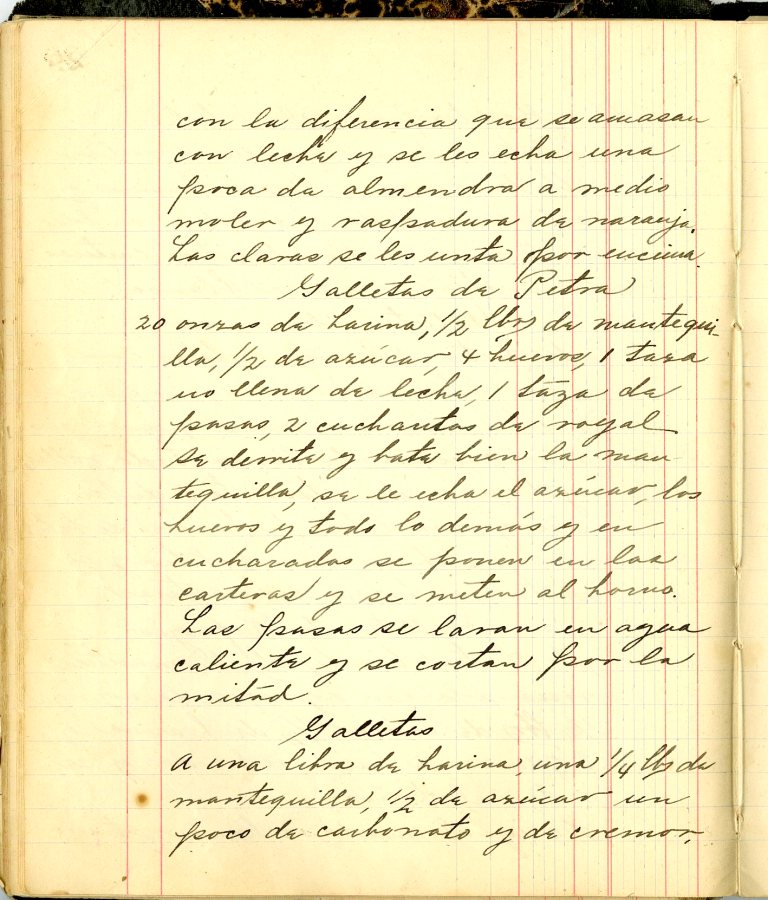 con la diferencia que se amasan
con leche y se les echa una
poca de almendra a medio
moler y raspadura de naranja.
Las claras se les unta por encima.
Galletas de Petra
20 onzas de harina, 1/2 lbs de mantequi-
lla, 1/2 de azúcar, 4 huevos, 1 taza
no llena de leche, 1 taza de
pasas, 2 cucharitas de royal
se derrite y bate bien la man-
tequilla, se le echa el azúcar, los
huevos y todo lo demás y en
cucharadas se ponen en las
carteras y se meten al horno.
Las pasas se lavan en agua
caliente y se cortan por la
mitad.
Galletas
A una libra de harina, una 1/4 lbs de
mantequilla, 1/2 de azúcar un
poco de carbonato y de cremor,